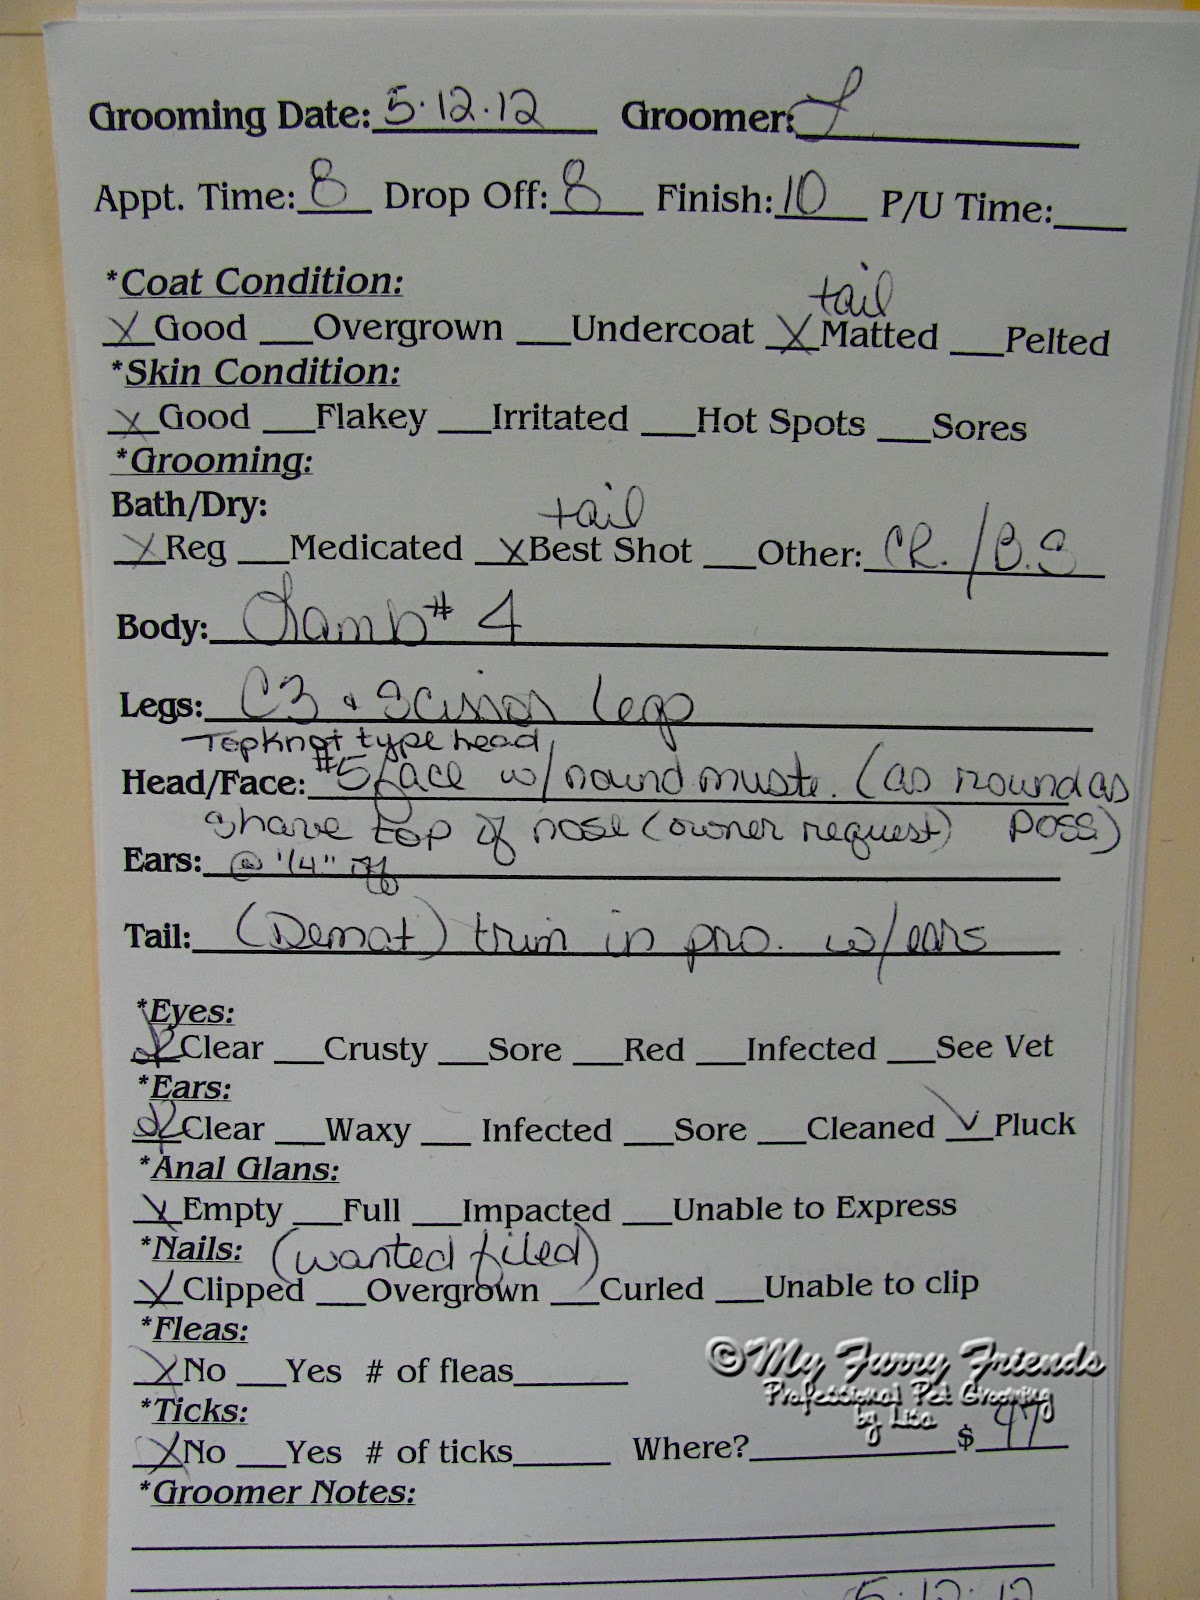 Grooming Date: 5.12.12 Groomer: L
Appt. Time: 8 Drop Off: 8 Finish: 10 P/U Time:____
*Coat Condition:
tail
X Good ___Overgrown ___Undercoat X Matted ___Pelted
*Skin Condition:
X Good ___Flakey ___Irritated ___Hot Spots ___Sores
*Grooming:
Bath/Dry:
tail
X Reg ___Medicated X Best Shot ___Other: CR./B.S
Body: Lamb # 4
Legs: C3 & Scissor Legs
Topknot type head
Head/Face: #5 face w/ round muste. (as round as
shave top of nose (owner request) poss)
Ears: @ 1/4" off
Tail: (Demat) trim in pro. w/ears
*Eyes:
Clear ___Crusty ___Sore ___Red ___Infected ___See Vet
*Ears:
Clear ___Waxy ___Infected ___Sore ___Cleaned ✓ Pluck
*Anal Glans:
X Empty ___Full ___Impacted ___Unable to Express
*Nails: (wanted filed)
X Clipped ___Overgrown ___Curled ___Unable to clip
*Fleas:
X No ___Yes # of fleas______
©My Furry Friends
Professional Pet Grooming
by Lisa
*Ticks:
X No ___Yes # of ticks_____ Where?__________ $ 47
*Groomer Notes:
5.12.12